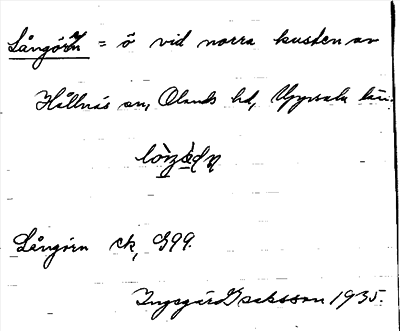 Långörn = ö vid norra kusten av
Hållnäs sn, Olands hd, Uppsala län.
Långörn ek, G99.
Ingegärd Isaksson 1935.